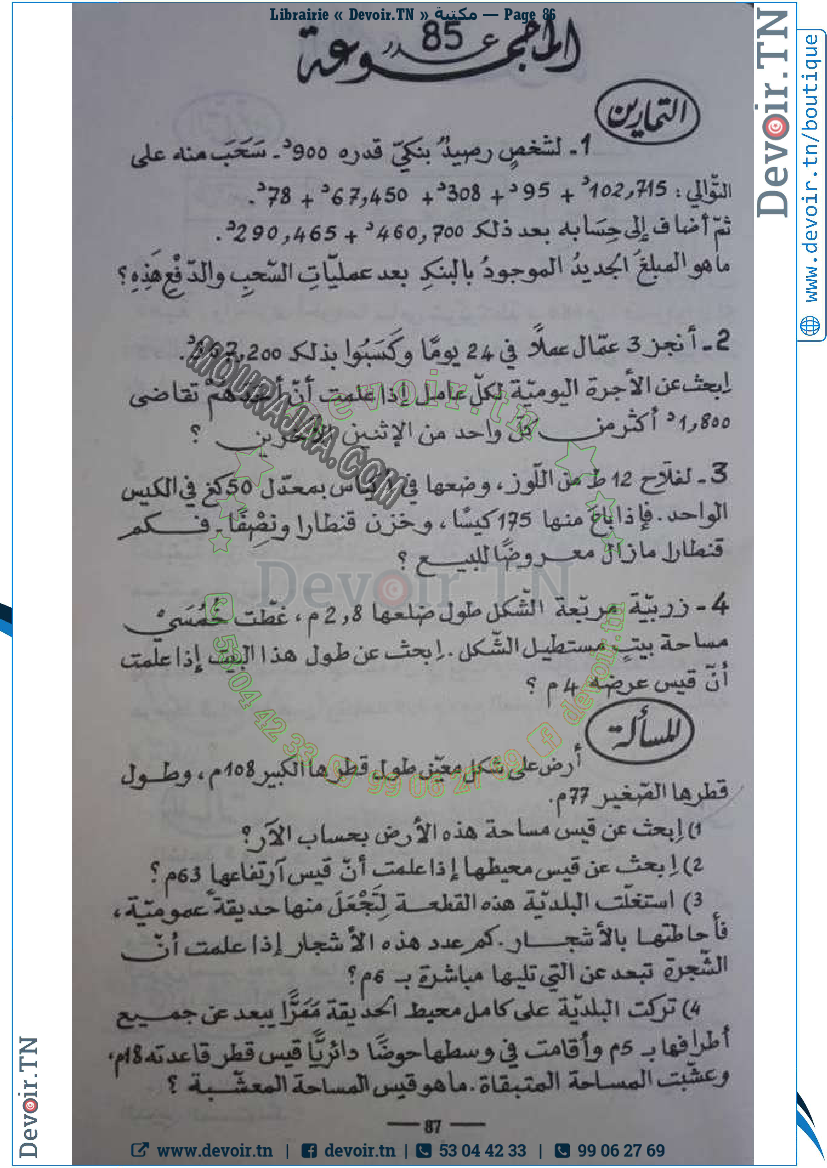 Librairie « Devoir.TN » مكتبة — Page 86
المجموعة عدد 85
التمارين
1- لشخصٍ رصيدٌ بنكيّ قدره 900د. سَحَبَ منه على
التّوالي: 102,715د + 95د + 308د + 67,450د + 78د.
ثمّ أضاف إلى حِسَابه بعد ذلك 460,700د + 290,465د.
ما هو المبلغُ الجديدُ الموجودُ بالبنكِ بعد عمليّاتِ السّحبِ والدّفْعِ هَذِهِ؟
2- أنجز 3 عمّال عملًا في 24 يومًا وكَسَبُوا بذلك 200,د.
اِبحث عن الأجرة اليوميّة لكلّ عامل إذا علمت أنّ أحدهمْ تقاضى
1,800د أكثر من كلّ واحد من الإثنين الآخرين ؟
3- لفلّاح 12 ط من اللّوز، وضعها في أكياس بمعدّل 50 كغ في الكيس
الواحد. فإذا باعَ منها 175 كيسًا، وخزن قنطارا ونِصْفًا. فكم
قنطارا مازال معروضًا للبيع ؟
4- زربيّة مربّعة الشّكل طول ضلعها 2,8 م، غطّت خُمُسَيْ
مساحة بيتٍ مستطيل الشّكل. اِبحث عن طول هذا البيت إذا علمت
أنّ قيس عرضه 4 م ؟
المسألة
أرض على شكل معيّن طول قطرها الكبير 108 م، وطول
قطرها الصّغير 77 م.
1) اِبحث عن قيس مساحة هذه الأرض بحساب الآر؟
2) اِبحث عن قيس محيطها إذا علمت أنّ قيس اَرتفاعها 63 م؟
3) استغلّت البلديّة هذه القطعة لِتَجْعَلَ منها حديقة عموميّة،
فأحاطتها بالأشجار. كم عدد هذه الأشجار إذا علمت أنّ
الشّجرة تبعد عن التي تليها مباشرة بـ 6 م؟
4) تركت البلديّة على كامل محيط الحديقة مَمَرًّا يبعد عن جميع
أطرافها بـ 5 م وأقامت في وسطها حوضًا دائريًّا قيس قطر قاعدته 18 م،
وعشّبت المساحة المتبقاة. ما هو قيس المساحة المعشّبة ؟
87
www.devoir.tn | devoir.tn | 53 04 42 33 | 99 06 27 69
Devoir.TN
www.devoir.tn/boutique
Devoir.TN
MOURAJAA.COM
devoir.tn
Devoir.TN
53 04 42 33
99 06 27 69
devoir.tn